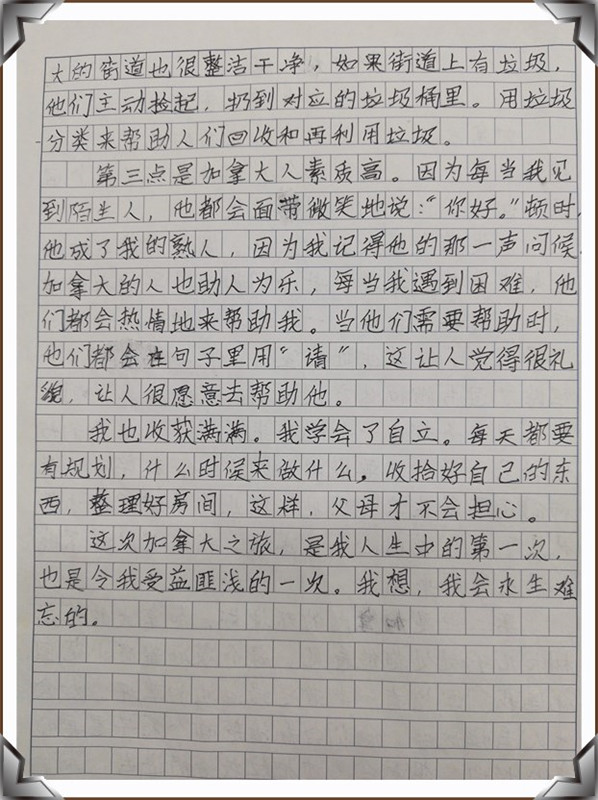 大的街道也很整洁干净，如果街道上有垃圾，
他们主动捡起，扔到对应的垃圾桶里。用垃圾
分类来帮助人们回收和再利用垃圾。
第三点是加拿大人素质高。因为每当我见
到陌生人，他都会面带微笑地说：“你好。”顿时，
他成了我的熟人，因为我记得他的那一声问候。
加拿大的人也助人为乐，每当我遇到困难，他
们都会热情地来帮助我。当他们需要帮助时，
他们都会在句子里用“请”，这让人觉得很礼
貌，让人很愿意去帮助他。
我也收获满满。我学会了自立。每天都要
有规划，什么时侯来做什么。收拾好自己的东
西，整理好房间，这样，父母才不会担心。
这次加拿大之旅，是我人生中的第一次，
也是令我受益匪浅的一次。我想，我会永生难
忘的。